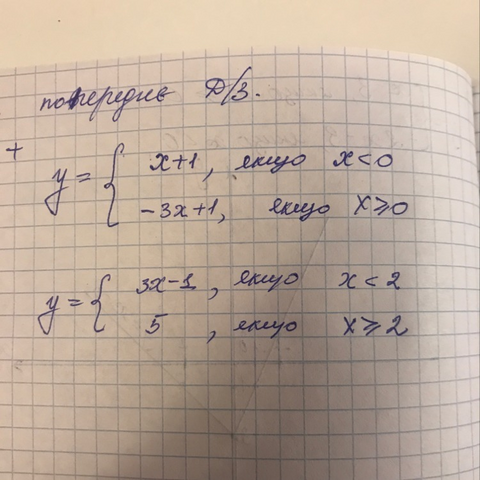 попереднє Д/З.
+
y = { x+1, якщо x<0
-3x+1, якщо x⩾0
y = { 3x-1, якщо x<2
5, якщо x⩾2